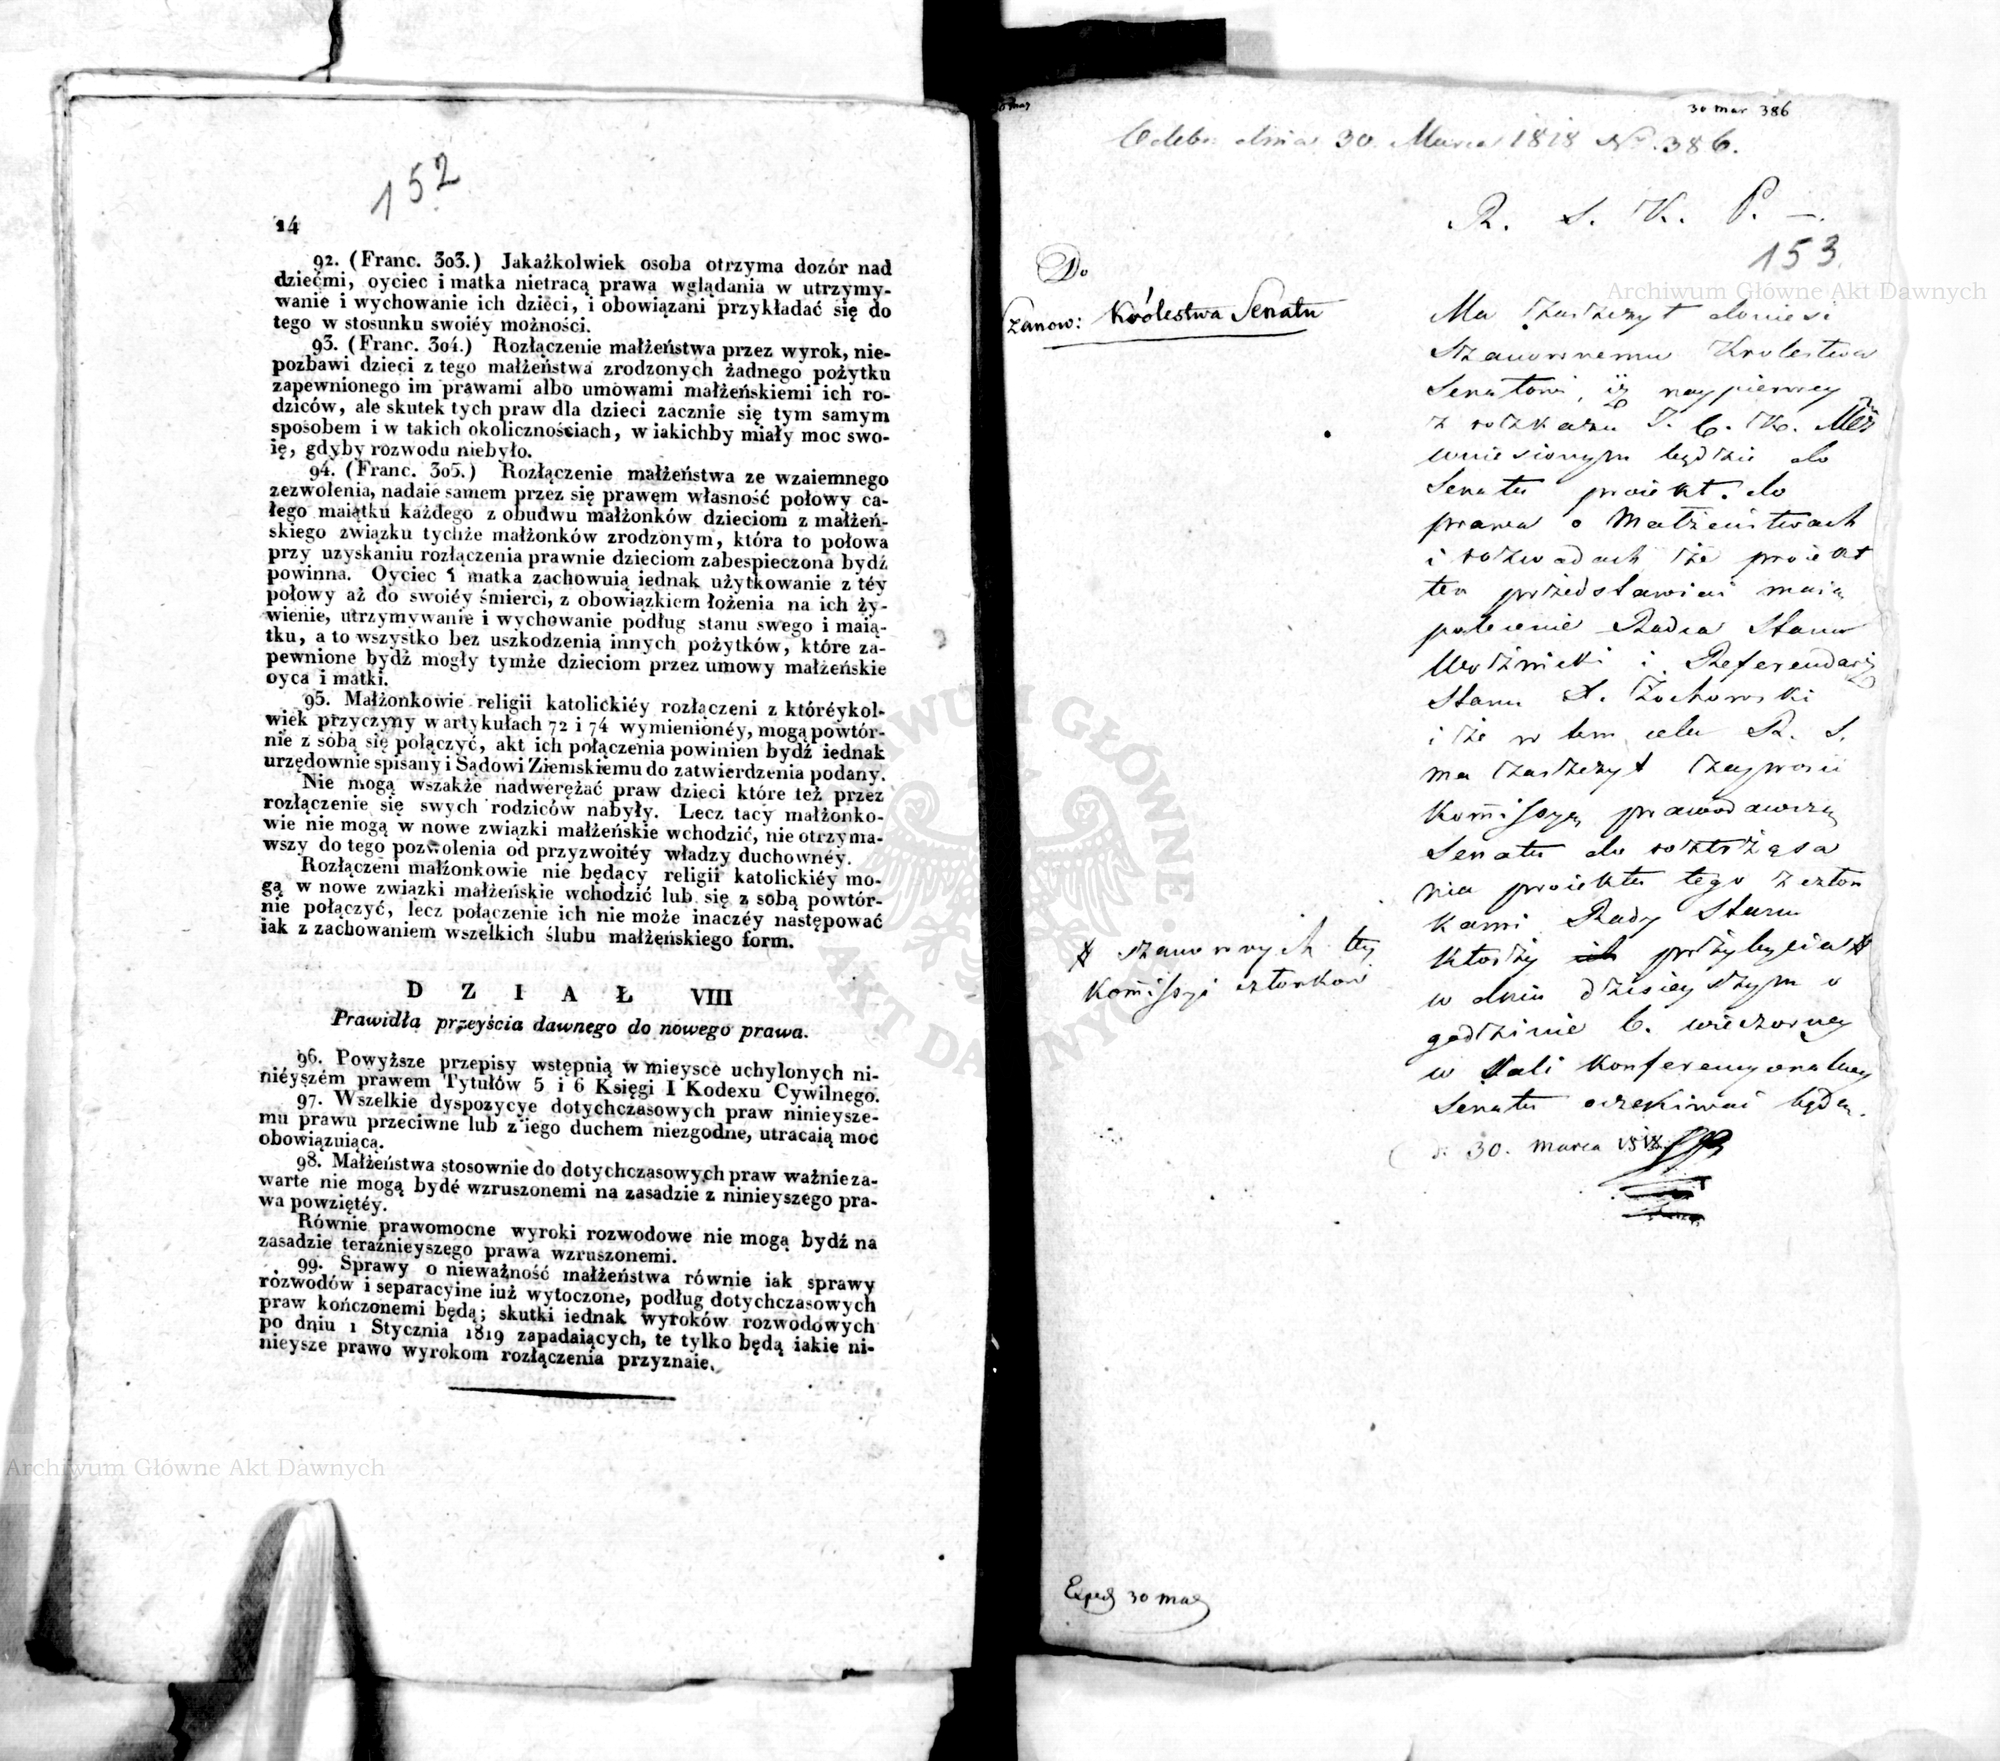 152
14
92. (Franc. 303.) Jakążkolwiek osoba otrzyma dozór nad
dziećmi, oyciec i matka nietracą prawa wglądania w utrzymy-
wanie i wychowanie ich dzieci, i obowiązani przykładać się do
tego w stosunku swoiéy możności.
93. (Franc. 304.) Rozłączenie małżeństwa przez wyrok, nie-
pozbawi dzieci z tego małżeństwa zrodzonych żadnego pożytku
zapewnionego im prawami albo umowami małżeńskiemi ich ro-
dziców, ale skutek tych praw dla dzieci zacznie się tym samym
sposobem i w takich okolicznościach, w iakichby miały moc swo-
ię, gdyby rozwodu niebyło.
94. (Franc. 305.) Rozłączenie małżeństwa ze wzaiemnego
zezwolenia, nadaie samem przez się prawem własność połowy ca-
łego maiątku każdego z obudwu małżonków dzieciom z małżeń-
skiego związku tychże małżonków zrodzonym, która to połowa
przy uzyskaniu rozłączenia prawnie dzieciom zabespieczona bydź
powinna. Oyciec i matka zachowuią iednak użytkowanie z téy
połowy aż do swoiéy śmierci, z obowiązkiem łożenia na ich ży-
wienie, utrzymywanie i wychowanie podług stanu swego i maią-
tku, a to wszystko bez uszkodzenia innych pożytków, które za-
pewnione bydź mogły tymże dzieciom przez umowy małżeńskie
oyca i matki.
95. Małżonkowie religii katolickiéy rozłączeni z któréykol-
wiek przyczyny w artykułach 72 i 74 wymienionéy, mogą powtór-
nie z sobą się połączyć, akt ich połączenia powinien bydź iednak
urzędownie spisany i Sądowi Ziemskiemu do zatwierdzenia podany.
Nie mogą wszakże nadwerężać praw dzieci które też przez
rozłączenie się swych rodziców nabyły. Lecz tacy małżonko-
wie nie mogą w nowe związki małżeńskie wchodzić, nie otrzyma-
wszy do tego pozwolenia od przyzwoitéy władzy duchownéy.
Rozłączeni małżonkowie nie będący religii katolickiéy mo-
gą w nowe związki małżeńskie wchodzić lub się z sobą powtór-
nie połączyć, lecz połączenie ich nie może inaczéy następować
iak z zachowaniem wszelkich ślubu małżeńskiego form.
DZIAŁ VIII
Prawidła przeyścia dawnego do nowego prawa.
96. Powyższe przepisy wstępuią w mieysce uchylonych ni-
niéyszém prawem Tytułów 5 i 6 Księgi I Kodexu Cywilnego.
97. Wszelkie dyspozycye dotychczasowych praw ninieysze-
mu prawu przeciwne lub z iego duchem niezgodne, utracaią moc
obowiązuiącą.
98. Małżeństwa stosownie do dotychczasowych praw ważnie za-
warte nie mogą bydé wzruszonemi na zasadzie z ninieyszego pra-
wa powziętéy.
Równie prawomocne wyroki rozwodowe nie mogą bydź na
zasadzie teraźnieyszego prawa wzruszonemi.
99. Sprawy o nieważność małżeństwa równie iak sprawy
rozwodów i separacyine iuż wytoczone, podług dotychczasowych
praw kończonemi będą; skutki iednak wyroków rozwodowych
po dniu 1 Stycznia 1819 zapadaiących, te tylko będą iakie ni-
nieysze prawo wyrokom rozłączenia przyznaie.
30 mar 386
Odebr: dnia 30. Marca 1818 No. 386.
R. S. K. P. —.
153.
Do
Szanow: Królestwa Senatu
Ma zaszczyt donieść
Szanownemu Krolestwa
Senatowi, iż naypierwey
z rozkazu J. C. K. Mći
wniesionym będzie do
Senatu proiekt do
prawa o Małżeństwach
i rozwodach że proiekt
ten przedstawiać maią
polecenie Radca Stanu
Woźnicki i Referendarz
Stanu S. Żochowski
i że w tem celu R. S.
ma zaszczyt zaprosić
Kommissyą prawodawczą
Senatu do roztrząsa
nia proiektu tego z człon
kami Rady Stanu
ktorzy przybycia
szanownych tey
Kommissyi członkow
w dniu dzisieyszym o
godzinie 6. wieczorney
w Sali Konferencyonalney
Senatu oczekiwać będą.
d. 30. marca 1818.
Exped 30 mar
Archiwum Główne Akt Dawnych
Archiwum Główne Akt Dawnych
ARCHIWUM GŁÓWNE AKT DAWNYCH